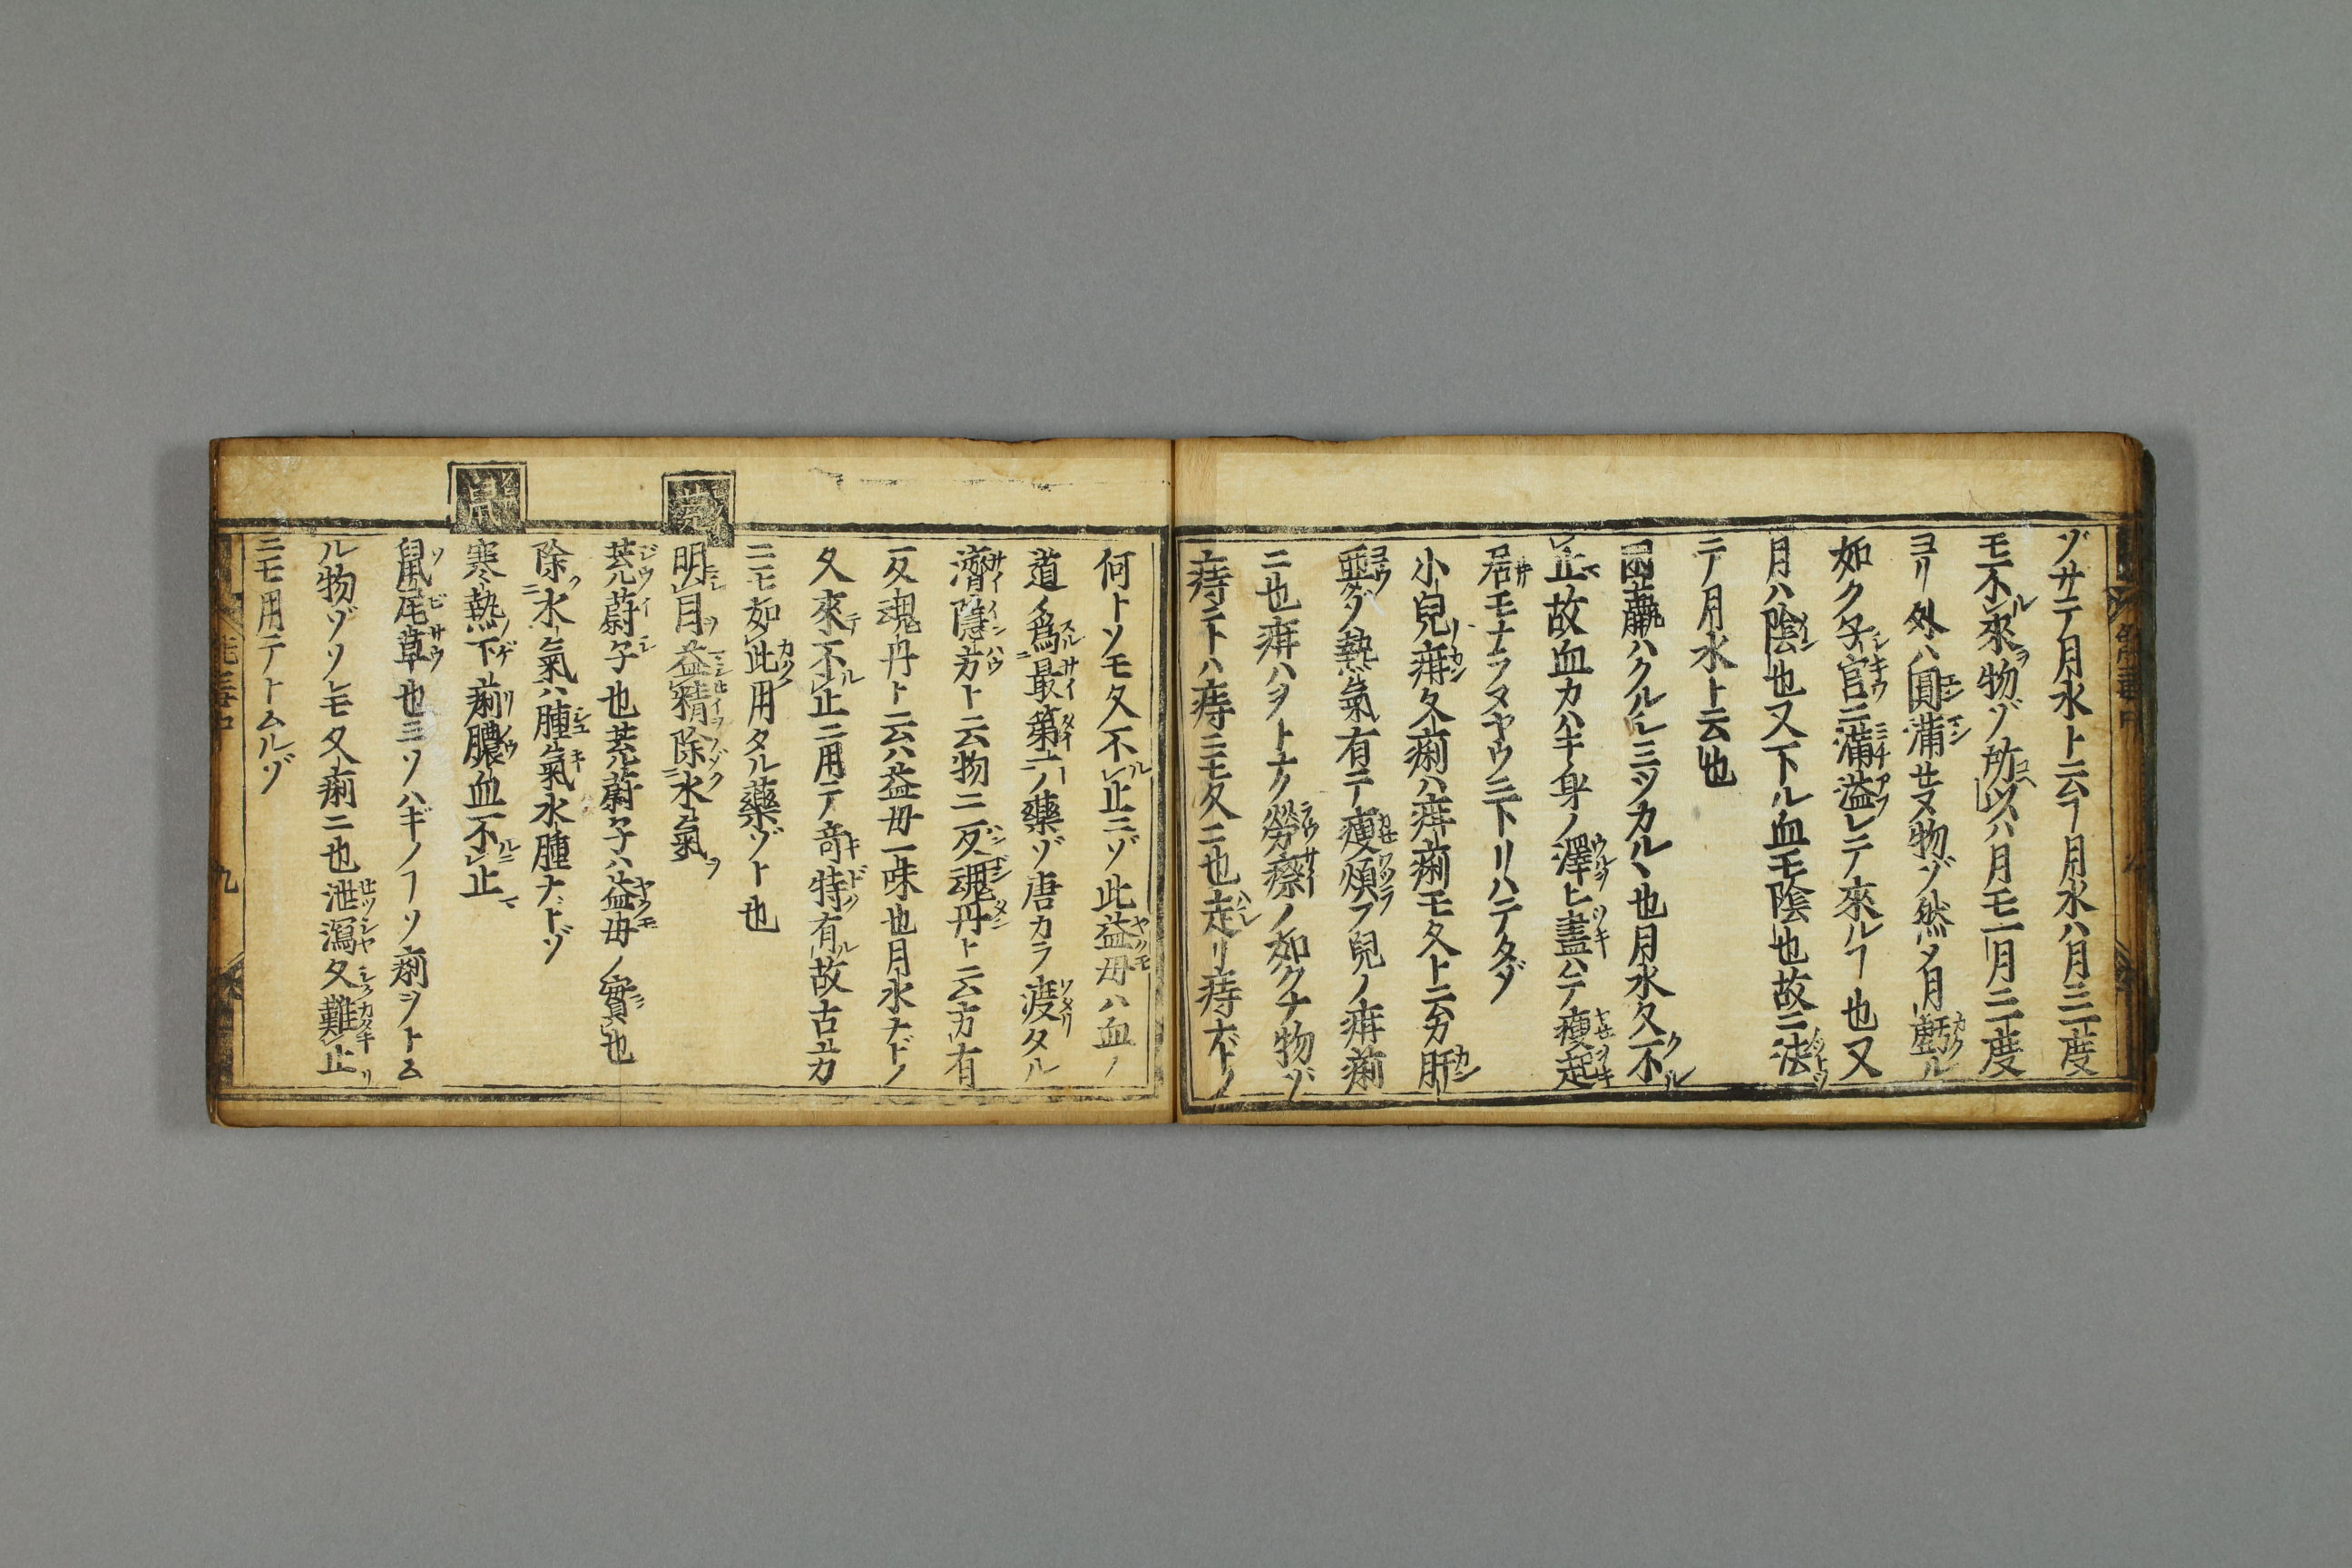 ゾサテ月水ト云フ月水ハ月三一度
モ不來物ゾ所以ハ月モ一月ニ一度
ヨリ外ハ圓滿せヌ物ゾ然メ月虧ル
如ク子宮ニ滿溢レテ來ルヿ也又
月ハ陰也又下ル血モ陰也故ニ法
ニテ月水ト云也
ハクルシミツカルヽ也月水久不
止故血カハキ身ノ澤ヒ盡ハテ瘦起
居モナラヌヤウニ下リハテタゾ
小兒疳久痢ハ疳痢モ久ト云カ肝
亟ダ熱氣有テ瘦煩フ兒ノ疳痢
ニ也疳ハヲトナノ勞瘵ノ如クナ物ゾ
痔ニトハ痔ニモ久ニ也走リ痔ナドノ
何トソモ久不止ニゾ此益母ハ血ノ
道ノ爲最第一ノ藥ゾ唐カラ渡タル
濟陰方ト云物ニ反魂丹ト云方有
反魂丹ト云ハ益母一味也月水ナドノ
久來不止ニ用テ奇特有故古方
ニモ如此用タル藥ゾト也
明目益精除水氣
茺蔚子也茺蔚子ハ益母ノ實也
除水氣ハ腫氣水腫ナドゾ
鼠
寒熱下痢膿血不止
鼠尾草也ミソハギノヿソ痢ヲトム
ル物ゾソレモ久痢ニ也泄瀉久難止
ニモ用テトムルゾ
九